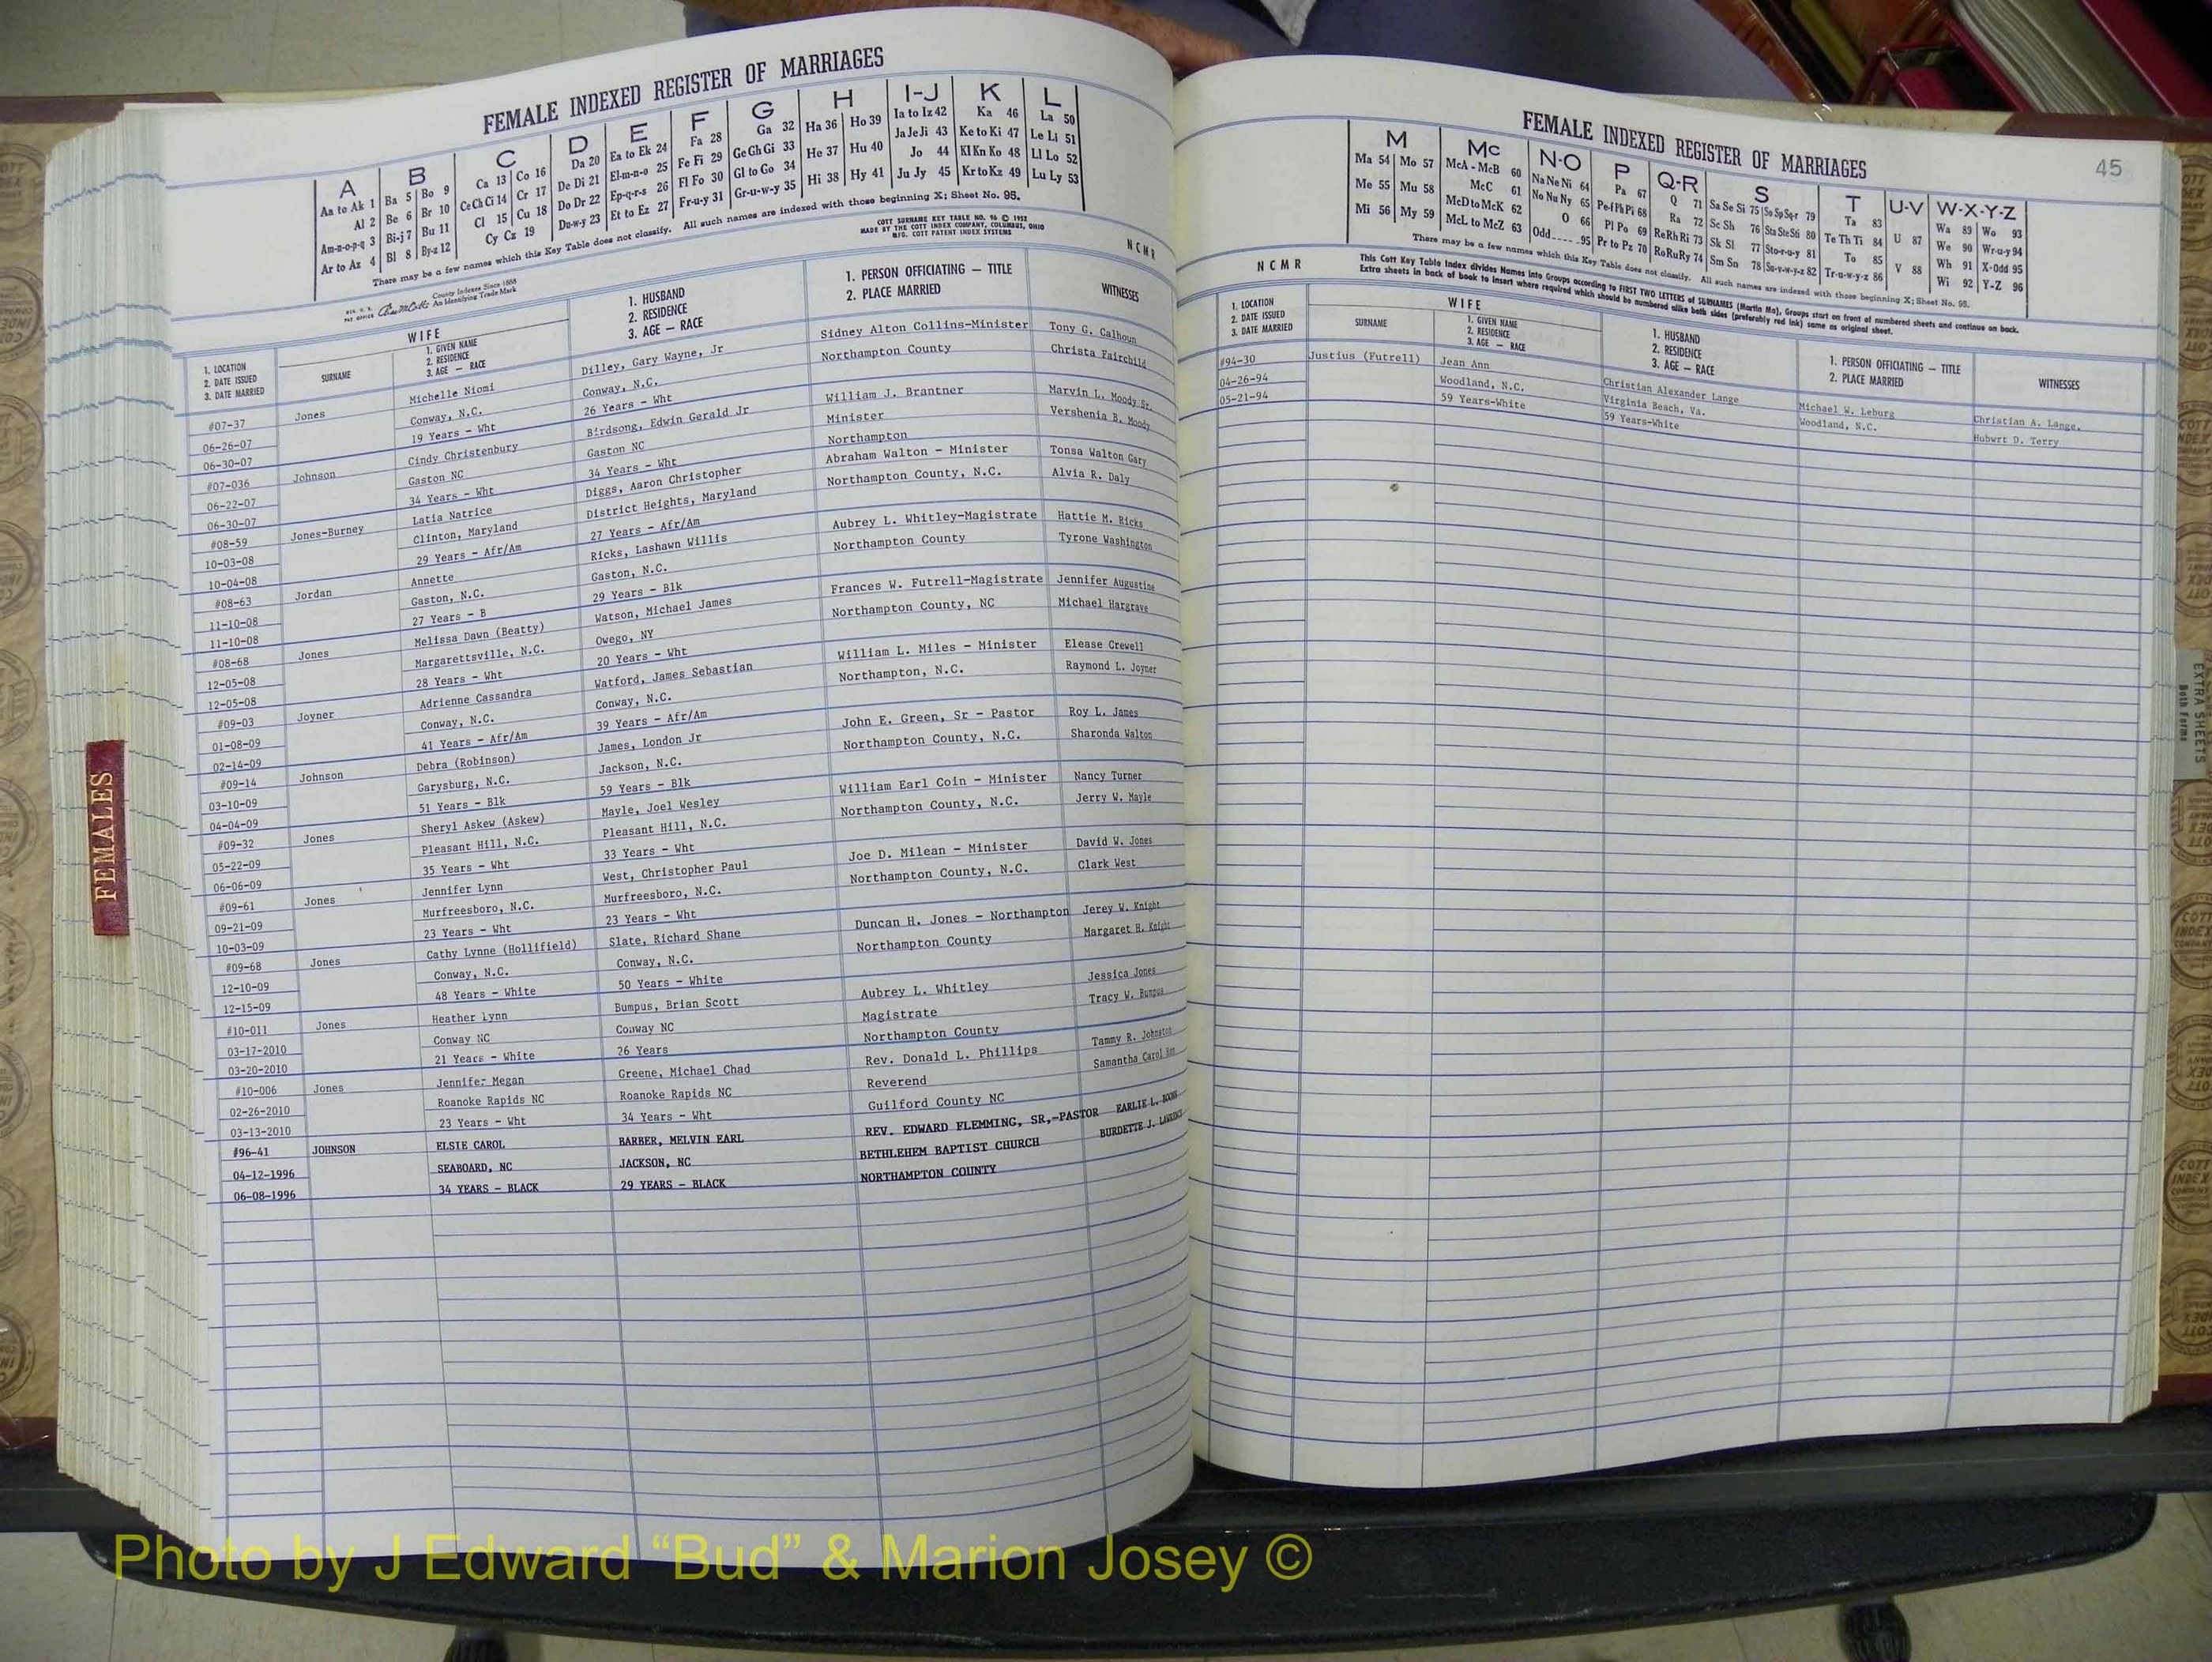 FEMALE INDEXED REGISTER OF MARRIAGES
A B C D E F G H I-J K L
Aa to Ak 1 Ba 5 Bo 9 Ca 13 Co 16 Da 20 Ea to Ek 24 Fa 28 Ga 32 Ha 36 Ho 39 Ia to Iz 42 Ka 46 La 50
Al 2 Be 6 Br 10 Ce Ch Ci 14 Cr 17 De Di 21 El-m-n-o 25 Fe Fi 29 Ge Gh Gi 33 He 37 Hu 40 Ja Je Ji 43 Ke to Ki 47 Le Li 51
Am-n-o-p-q 3 Bi-j 7 Bu 11 Cl 15 Cu 18 Do Dr 22 Ep-q-r-s 26 Fl Fo 30 Gl to Go 34 Hi 38 Hy 41 Jo 44 Kl Kn Ko 48 Ll Lo 52
Ar to Az 4 Bl 8 By-z 12 Cy Cz 19 Du-w-y 23 Et to Ez 27 Fr-u-y 31 Gr-u-w-y 35 Ju Jy 45 Kr to Kz 49 Lu Ly 53
There may be a few names which this Key Table does not classify. All such names are indexed with those beginning X; Sheet No. 95.
County Indexes Since 1888
An Identifying Trade Mark
COTT SURNAME KEY TABLE NO. 96 © 1952
MADE BY THE COTT INDEX COMPANY, COLUMBUS, OHIO
MFG. COTT PATENT INDEX SYSTEMS
N C M R
1. LOCATION
2. DATE ISSUED
3. DATE MARRIED
WIFE
SURNAME
1. GIVEN NAME
2. RESIDENCE
3. AGE — RACE
1. HUSBAND
2. RESIDENCE
3. AGE — RACE
1. PERSON OFFICIATING — TITLE
2. PLACE MARRIED
WITNESSES
#07-37 Jones Michelle Niomi Dilley, Gary Wayne, Jr Sidney Alton Collins-Minister Tony G. Calhoun
06-26-07 Conway, N.C. Conway, N.C. Northampton County Christa Fairchild
06-30-07 19 Years - Wht 26 Years - Wht
#07-036 Johnson Cindy Christenbury Birdsong, Edwin Gerald Jr William J. Brantner Marvin L. Moody Sr.
06-22-07 Gaston NC Gaston NC Minister Vershenia B. Moody
06-30-07 34 Years - Wht 34 Years - Wht Northampton
#08-59 Jones-Burney Latia Natrice Diggs, Aaron Christopher Abraham Walton - Minister Tonsa Walton Gary
10-03-08 Clinton, Maryland District Heights, Maryland Northampton County, N.C. Alvia R. Daly
10-04-08 29 Years - Afr/Am 27 Years - Afr/Am
#08-63 Jordan Annette Ricks, Lashawn Willis Aubrey L. Whitley-Magistrate Hattie M. Ricks
11-10-08 Gaston, N.C. Gaston, N.C. Northampton County Tyrone Washington
11-10-08 27 Years - B 29 Years - Blk
#08-68 Jones Melissa Dawn (Beatty) Watson, Michael James Frances W. Futrell-Magistrate Jennifer Augustine
12-05-08 Margarettsville, N.C. Owego, NY Northampton County, NC Michael Hargrave
12-05-08 28 Years - Wht 20 Years - Wht
#09-03 Joyner Adrienne Cassandra Watford, James Sebastian William L. Miles - Minister Elease Crewell
01-08-09 Conway, N.C. Conway, N.C. Northampton, N.C. Raymond L. Joyner
02-14-09 41 Years - Afr/Am 39 Years - Afr/Am
#09-14 Johnson Debra (Robinson) James, London Jr John E. Green, Sr - Pastor Roy L. James
03-10-09 Garysburg, N.C. Jackson, N.C. Northampton County, N.C. Sharonda Walton
04-04-09 51 Years - Blk 59 Years - Blk
#09-32 Jones Sheryl Askew (Askew) Mayle, Joel Wesley William Earl Coin - Minister Nancy Turner
05-22-09 Pleasant Hill, N.C. Pleasant Hill, N.C. Northampton County, N.C. Jerry W. Mayle
06-06-09 35 Years - Wht 33 Years - Wht
#09-61 Jones Jennifer Lynn West, Christopher Paul Joe D. Milean - Minister David W. Jones
09-21-09 Murfreesboro, N.C. Murfreesboro, N.C. Northampton County, N.C. Clark West
10-03-09 23 Years - Wht 23 Years - Wht
#09-68 Jones Cathy Lynne (Hollifield) Slate, Richard Shane Duncan H. Jones - Northampton Jerey W. Knight
12-10-09 Conway, N.C. Conway, N.C. Northampton County Margaret H. Knight
12-15-09 48 Years - White 50 Years - White
#10-011 Jones Heather Lynn Bumpus, Brian Scott Aubrey L. Whitley Jessica Jones
03-17-2010 Conway NC Conway NC Magistrate Tracy W. Bumpus
03-20-2010 21 Years - White 26 Years Northampton County
#10-006 Jones Jennifer Megan Greene, Michael Chad Rev. Donald L. Phillips Tammy R. Johnston
02-26-2010 Roanoke Rapids NC Roanoke Rapids NC Reverend Samantha Carol
03-13-2010 23 Years - Wht 34 Years - Wht Guilford County NC
#96-41 JOHNSON ELSIE CAROL BARBER, MELVIN EARL REV. EDWARD FLEMMING, SR,-PASTOR EARLIE L.
04-12-1996 SEABOARD, NC JACKSON, NC BETHLEHEM BAPTIST CHURCH BURDETTE J.
06-08-1996 34 YEARS - BLACK 29 YEARS - BLACK NORTHAMPTON COUNTY
FEMALES
FEMALE INDEXED REGISTER OF MARRIAGES
45
M Mc N-O P Q-R S T U-V W-X-Y-Z
Ma 54 Mo 57 McA - McB 60 Na Ne Ni 64 Pa 67 Q 71 Sa Se Si 75 So Sp Sq-r 79 Ta 83 Wa 89 Wo 93
Me 55 Mu 58 McC 61 No Nu Ny 65 Pe-f Ph Pi 68 Ra 72 Sc Sh 76 Sta Ste Sti 80 Te Th Ti 84 U 87 We 90 Wr-u-y 94
Mi 56 My 59 McD to McK 62 O 66 Pl Po 69 Re Rh Ri 73 Sk Sl 77 Sto-r-u-y 81 To 85 V 88 Wh 91 X-Odd 95
McL to McZ 63 Odd 95 Pr to Pz 70 Ro Ru Ry 74 Sm Sn 78 Su-v-w-y-z 82 Tr-u-w-y-z 86 Wi 92 Y-Z 96
There may be a few names which this Key Table does not classify. All such names are indexed with those beginning X; Sheet No. 95.
This Cott Key Table Index divides Names into Groups according to FIRST TWO LETTERS of SURNAMES (Martin Ma), Groups start on front of numbered sheets and continue on back.
Extra sheets in back of book to insert where required which should be numbered alike both sides (preferably red ink) same as original sheet.
N C M R
1. LOCATION
2. DATE ISSUED
3. DATE MARRIED
WIFE
SURNAME
1. GIVEN NAME
2. RESIDENCE
3. AGE — RACE
1. HUSBAND
2. RESIDENCE
3. AGE — RACE
1. PERSON OFFICIATING — TITLE
2. PLACE MARRIED
WITNESSES
#94-30 Justius (Futrell) Jean Ann Christian Alexander Lange Michael W. Leburg Christian A. Lange,
04-26-94 Woodland, N.C. Virginia Beach, Va. Woodland, N.C. Hubwrt D. Terry
05-21-94 59 Years-White 59 Years-White
EXTRA SHEETS
Both Forms
Photo by J Edward “Bud” & Marion Josey ©